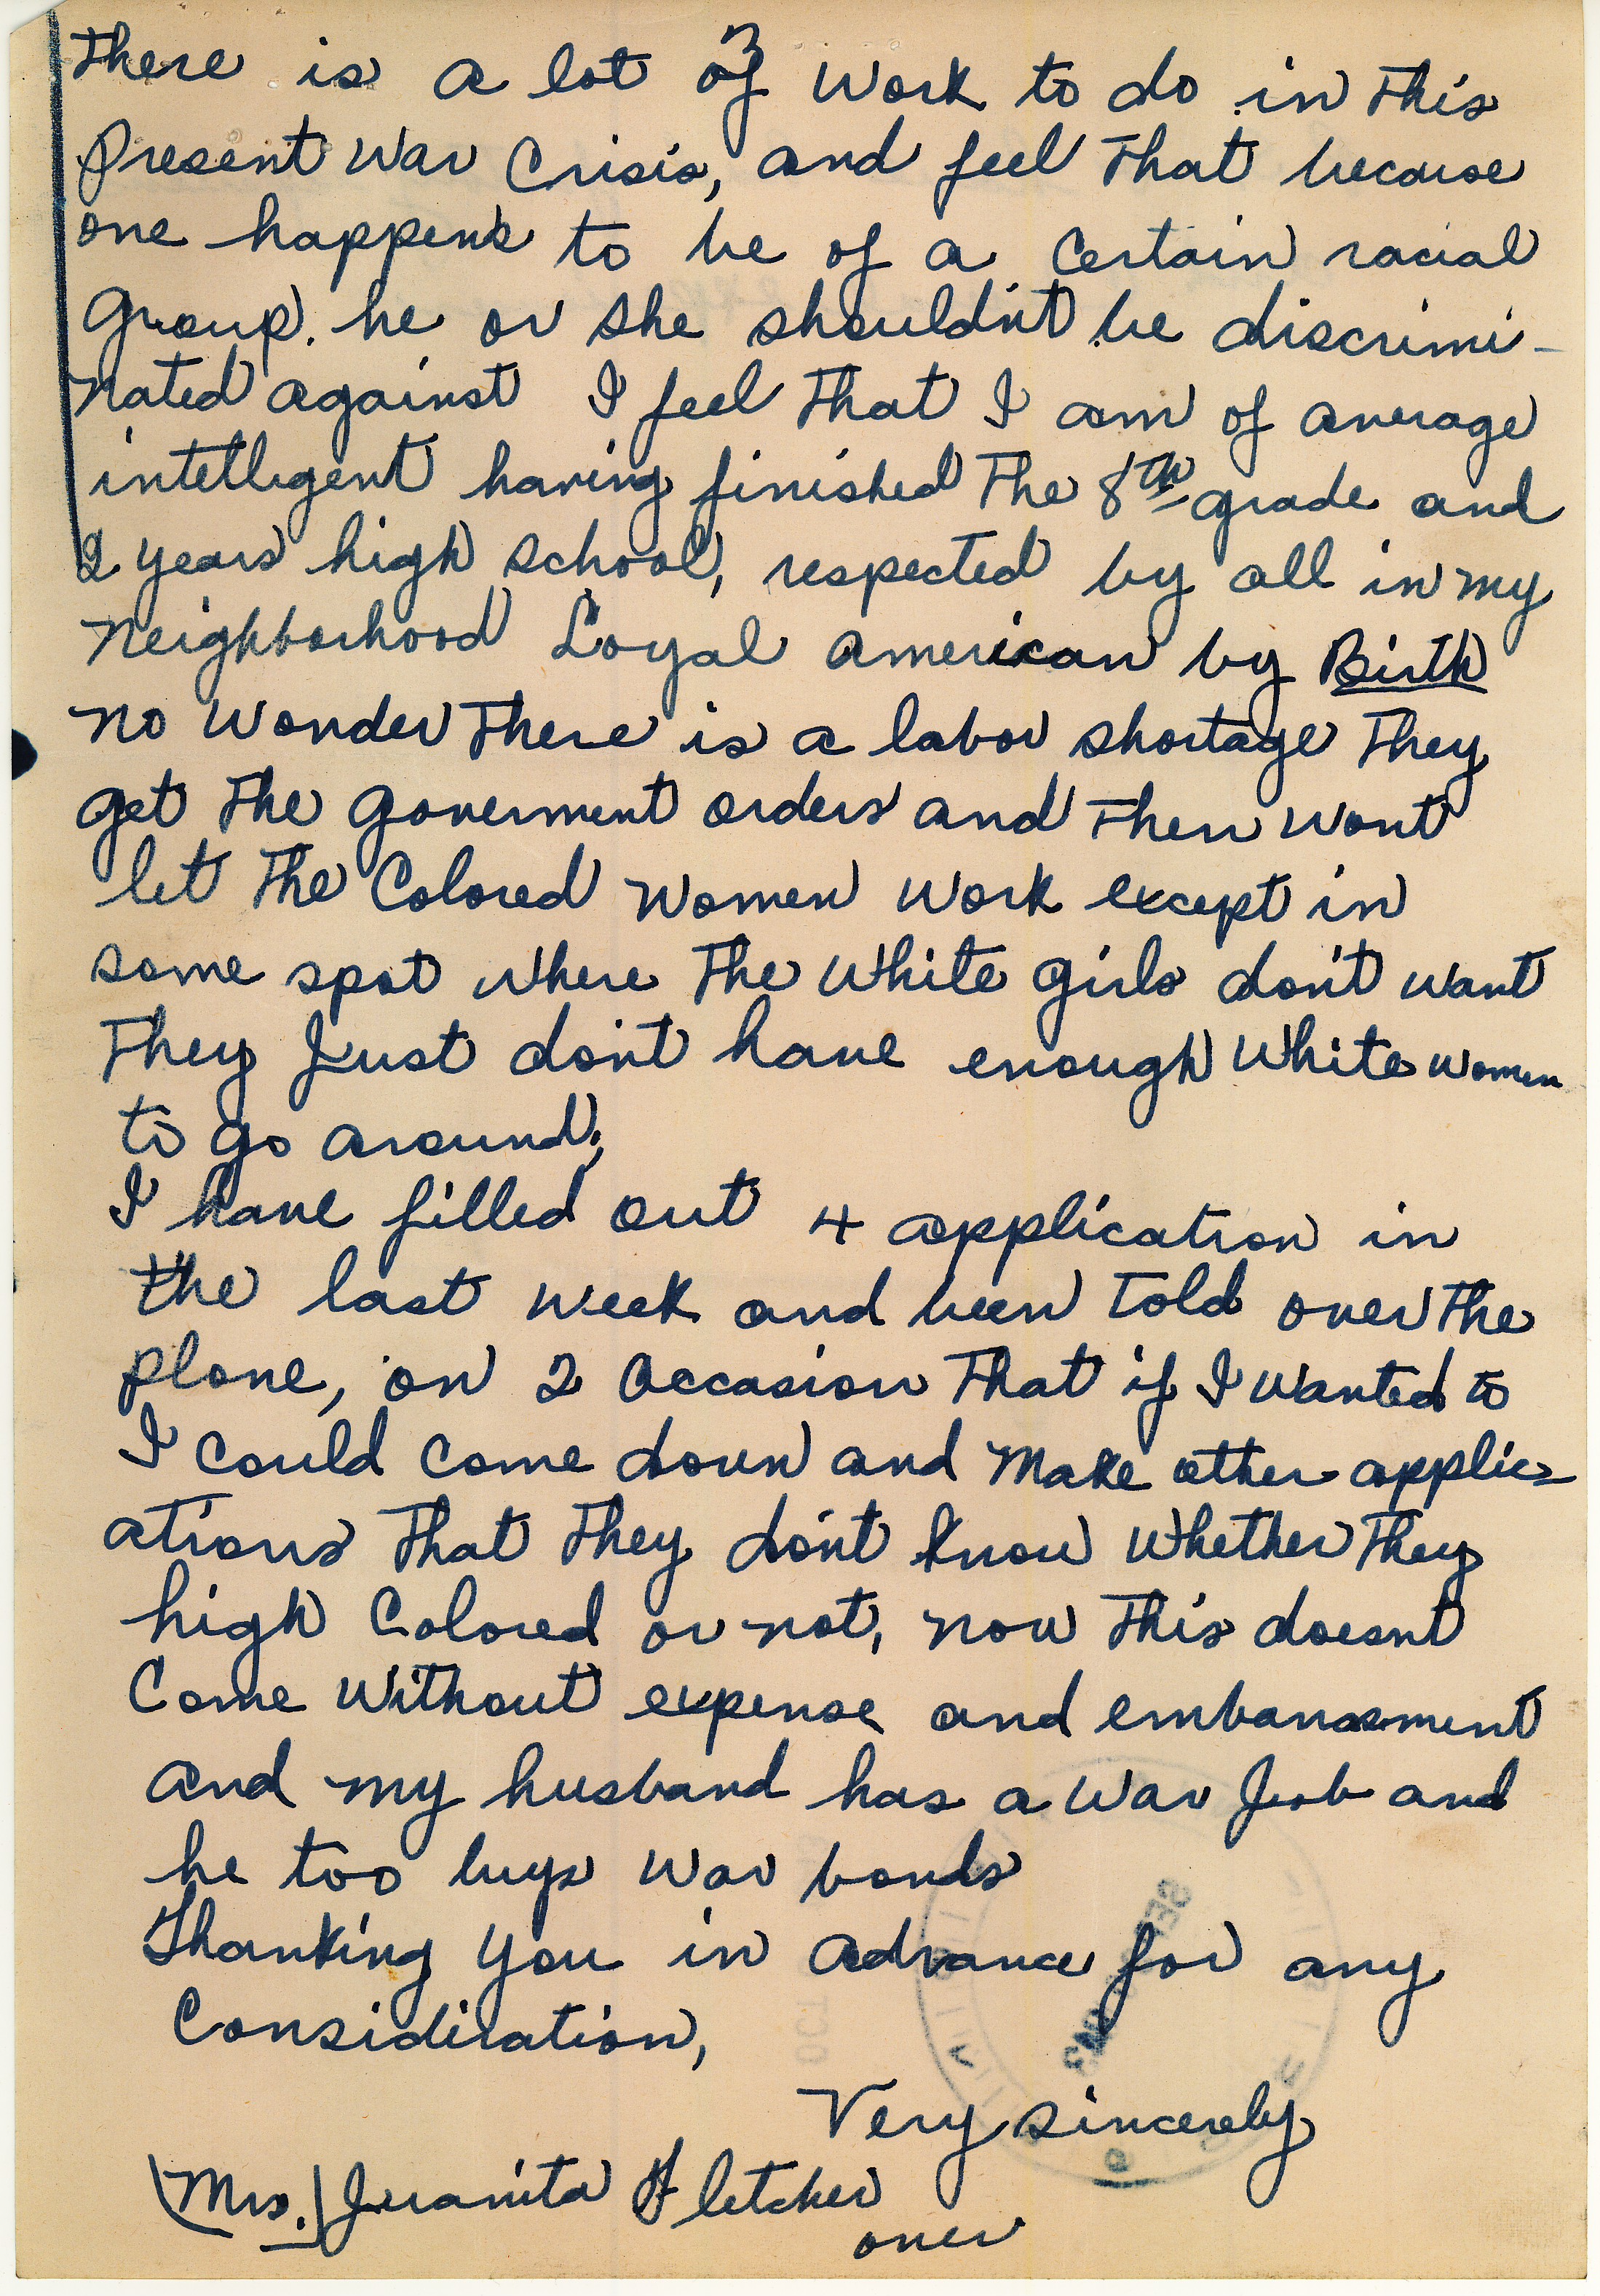 There is a lot of work to do in this
present war crisis, and feel that because
one happens to be of a certain racial
group. he or she should'nt be discrimi-
nated against I feel that I am of average
intelligent having finished the 8th grade and
2 years high school, respected by all in my
neighborhood Loyal American by Birth
no wonder there is a labor shortage they
get the goverment orders and then wont
let the Colored women work except in
some spot where the white girls don't want
They just don't have enough white women
to go around;
I have filled out 4 application in
the last week and been told over the
plone, on 2 occasion that if I wanted to
I could come down and make other applic-
ations that they don't know whether they
high Colored or not, now this doesnt
come without expense and embarrasment
and my husband has a war job and
he too buys war bonds
Thanking you in advance for any
Consideration,
Very sincerely
(Mrs.) Juanita Fletcher
over